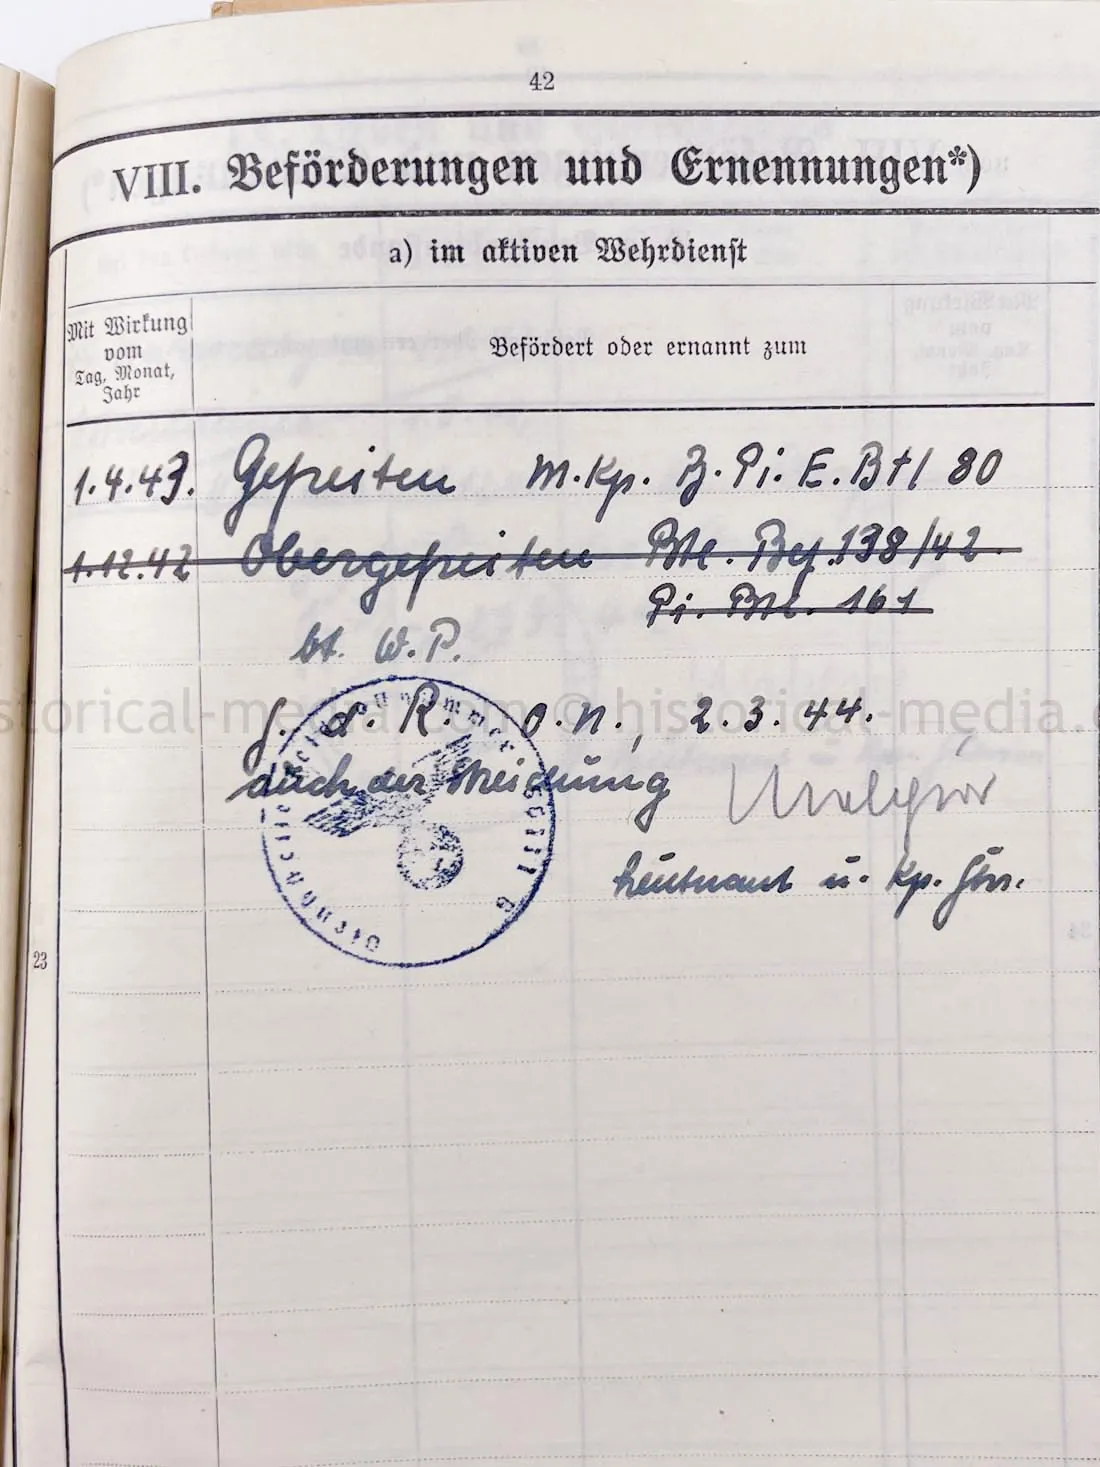 42
VIII. Beförderungen und Ernennungen*)
a) im aktiven Wehrdienst
Mit Wirkung
vom
Tag, Monat,
Jahr
Befördert oder ernannt zum
1.4.43. Gefreiten M.Kp. B. Pi. E. Btl 80
1.12.42 Obergefreiten Btl. Bef. 138/42.
Pi. Btl. 161
bt. W.P.
historical-media.com © historical-media.c
f. d. R. O.U., 2.3.44.
auch der Streichung
Leutnant u. Kp. Fhr.
23